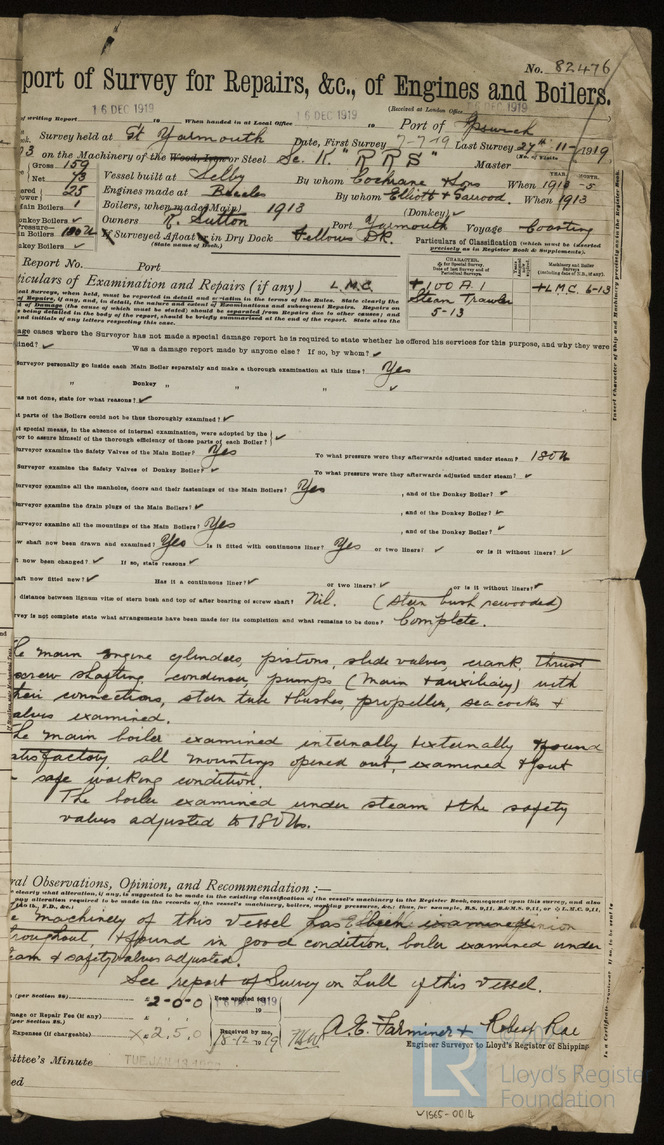 No. 82476
port of Survey for Repairs, &c., of Engines and Boilers.
of writing Report 16 DEC 1919 19 When handed in at Local Office 16 DEC 1919 19 (Received at London Office DEC 1919
Port of Ipswich
Survey held at Gt Yarmouth Date, First Survey 7-7-19 Last Survey 27th 11-1919
(No. of Visits
on the Machinery of the Wood, Iron or Steel Sc. K. "R R S" Master
Gross 159
Net 73
Vessel built at Selby By whom Cochrane & Sons When 1913 -5
YEAR. MONTH.
Power 25 Engines made at Beccles By whom Elliott & Garrood. When 1913
Main Boilers 1 Boilers, when made (Main) 1913 (Donkey) ✓
Donkey Boilers ✓ Owners R. Sutton Port Yarmouth Voyage Coasting
Pressure—
in Boilers 180 lb If Surveyed Afloat or in Dry Dock Fellows D.K.
(State name of Dock.)
nkey Boilers ✓
Particulars of Classification (which must be inserted precisely as in Register Book & Supplements).
Report No. Port
ticulars of Examination and Repairs (if any) L.M.C.
CHARACTER.
+100 A.1
Steam Trawler
5-13
+L.M.C. 6-13
age cases where the Surveyor has not made a special damage report he is required to state whether he offered his services for this purpose, and why they were
ined? ✓ Was a damage report made by anyone else? If so, by whom? ✓
Surveyor personally go inside each Main Boiler separately and make a thorough examination at this time? Yes
" Donkey " " " ✓
as not done, state for what reasons? ✓
t parts of the Boilers could not be thus thoroughly examined? ✓
t special means, in the absence of internal examination, were adopted by the
yor to assure himself of the thorough efficiency of those parts of each Boiler? ✓
urveyor examine the Safety Valves of the Main Boiler? Yes To what pressure were they afterwards adjusted under steam? 180 lb
Surveyor examine the Safety Valves of Donkey Boiler? ✓ To what pressure were they afterwards adjusted under steam? ✓
Surveyor examine all the manholes, doors and their fastenings of the Main Boilers? Yes , and of the Donkey Boiler? ✓
Surveyor examine the drain plugs of the Main Boilers? ✓ , and of the Donkey Boiler? ✓
urveyor examine all the mountings of the Main Boilers? Yes , and of the Donkey Boiler? ✓
w shaft now been drawn and examined? Yes Is it fitted with continuous liner? Yes or two liners? ✓ or is it without liners? ✓
t now been changed? ✓ If so, state reasons ✓
aft now fitted new? ✓ Has it a continuous liner? ✓ or two liners? ✓ or is it without liners? ✓
distance between lignum vitæ of stern bush and top of after bearing of screw shaft? Nil. (stern bush rewooded)
rvey is not complete state what arrangements have been made for its completion and what remains to be done? Complete.
he main engine cylinders, pistons, slide valves, crank, thrust
screw shafting, condenser, pumps (main & auxiliary) with
their connections, stern tube & bushes, propeller, sea cocks &
alves examined.
he main boiler examined internally & externally & found
atisfactory, all mountings opened out, examined & put
safe working condition.
The boiler examined under steam & the safety
valves adjusted to 180 lbs.
ral Observations, Opinion, and Recommendation :—
e machinery of this vessel has been examined
throughout, & found in good condition, boiler examined under
eam & safety valves adjusted.
See report of Survey on Hull of this vessel.
(per Section 28) £ 2-0-0 Fees applied for 16 DEC 1919
mage or Repair Fee (if any)
(per Section 28.)
Expenses (if chargeable) 2.5.0 Received by me, 18-12-1919
A.E. Farminer & Robert Rae
Engineer Surveyor to Lloyd's Register of Shipping.
ittee's Minute TUE. JAN 13
ed
LR
Lloyd's Register
Foundation
V1565-0014